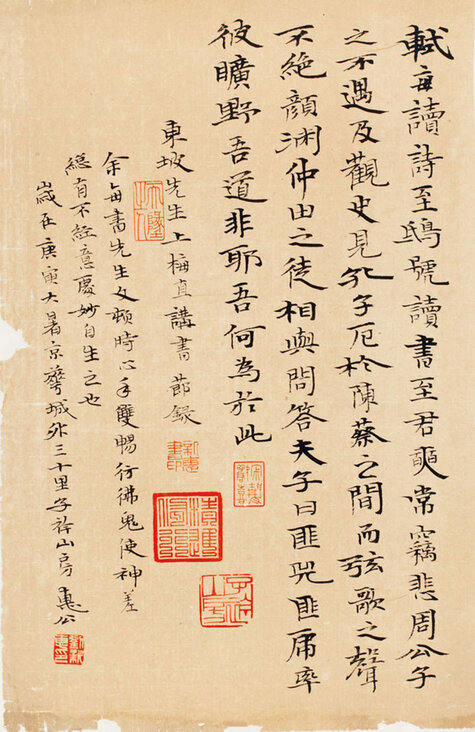 軾每讀詩至鴟號讀書至君奭常竊悲周公子
之不遇及觀史見孔子厄於陳蔡之間而弦歌之聲
不絕顏淵仲由之徒相與問答夫子曰匪兕匪虎率
彼曠野吾道非耶吾何為於此
東坡先生上梅直講書節錄
余每書先生文頓時心手雙暢彷彿鬼使神差
縱有不經意處妙自生之也
歲在庚寅大暑京城外三十里子許山房惠公
新惠書印
劉新惠印